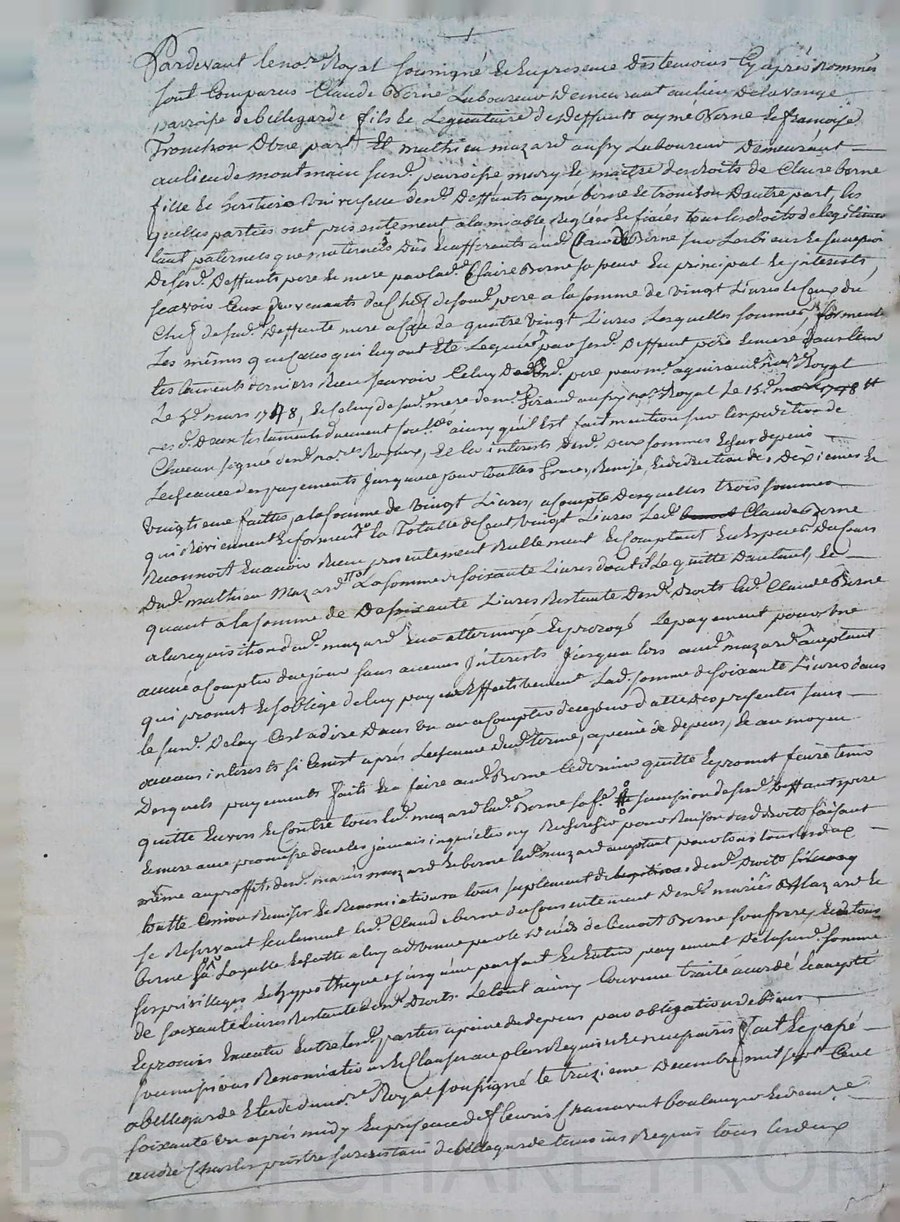 Pardevant le no.re Royal soussigné & en presence des temoins cy après nommés
sont comparus Claude Berne Laboureur demeurant au lieu de la
parroisse de bellegarde fils & Legataire des deffunts aymé Berne & françoise
Tronchon d'une part Et mathieu mazard aussy Laboureur demeurant
au lieu de parroisse & maître des droits de Claire berne
fille & heritiere universelle des.d. deffunts aymé berne & tronchon d'autre part, les
quelles parties ont presentement a lamiable reglés & fixés tous les droits de legitime
tant paternels que maternels dus & afferants aud. Claude Berne sur les biens &
des.d. deffunts pere & mere par lad. Claire Berne sa soeur En principal & interests
scavoir Ceux provenants du Chef de sond. pere a la somme de vingt Livres & Ceux du
Chef de sad. deffunte mere a celle de quatre vingt Livres Lesquelles sommes forment
Les mêmes que celles qui luy ont été Leguées par sesd. deffunt pere & mere dans leur
testaments derniers Receu scavoir Celuy dud. pere par m.e no.re Royal
Le 5.e mars 1748, & celuy de sad. mere de m.e aussy no.re Royal Le 15.e
deux testaments duement ainsy qu'il est fait mention sur l'expedition de
Chacun signée desd. no.res Royaux, Et les interests desd. deux sommes Echus depuis
Lecheance des payements jusqu'a ce jour toutes graces, Remise, & deduction des dixiemes &
vingtieme faittes, a la somme de vingt Livres, a Compte desquelles trois sommes
qui Reviennent & forment la Totalle de Cent vingt Livres Led. Claude Berne
Reconnoit En avoir Receu presentement Réellement & Comptant En Especes du Cours
dud. mathieu Mazard La somme de soixante Livres dont il Le quitte d'autant, Et
quant a la somme de soixante Livres Restante desd. Droits led. Claude Berne
a la requisition dud. mazard En a attermoyé & prorogé Le payement pour une
année a Compter de ce jour sans aucuns Interests Jusqu'a lors aud. mazard acceptant
qui promet & s'oblige de luy payer Effectivement Lad. somme de soixante Livres dans
le sud. delay C'est a dire dans un an a Compter de ce jour datte des presentes sans
aucuns interests si Ce n'est après Lecheance dud. terme, a peine de depens, & au moyen
Desquels payements faits & a faire aud. Berne Ce dernier quitte & promet faire tenir
quitte Envers & Contre tous led. mazard lad. Berne sa f.e & succession desd. deffunts pere
& mere avec promesse de ne les jamais inquieter ny Rechercher pour Raison desd. droits faisant
même au proffit desd. mariés mazard & berne led. mazard acceptant pour tous
toutte Cession Remise & Renonciation a tous suplement de legitime desd. Droits
se Reservant seulement led. Claude berne du Consentement desd. mariés Mazard &
berne Laquelle a luy advenue par le Deceds de benoit Berne son frere, & tous
ses privilleges & hypotheques jusqu'au parfait & Entier payement de la sud. somme
de soixante Livres Restante desd. Droits. Le tout ainsy Convenu traité accordé & accepté
& promis Executer Entre lesd. parties a peine de depens par obligation de biens
soumissions Renonciations & Clauses au plus Requises & necessaires Fait & passé
a bellegarde Etude du no.re Royal soussigné le treizieme Decembre mil sept Cent
soixante un après midy En presence de fleuris Chanavat boulanger & de m.e
andré Charles prestre sacristain de bellegarde temoins Requis tous lesdeux
Pascal CHARLEYRON